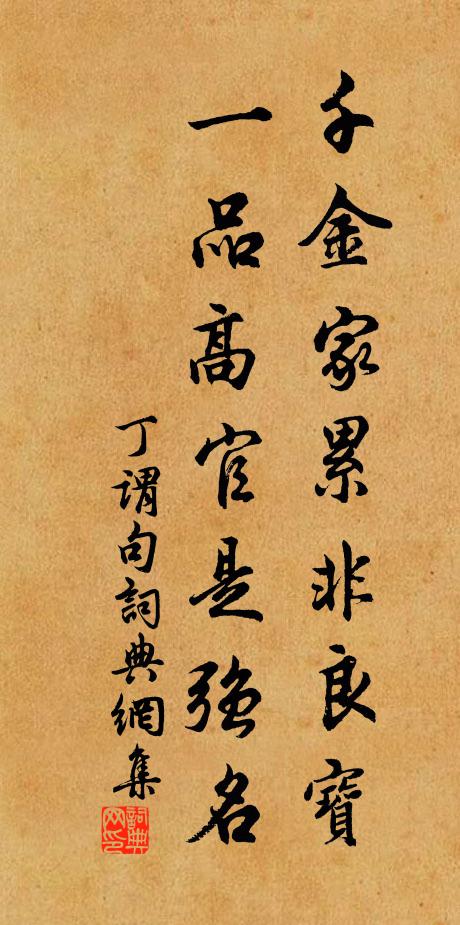 千金家累非良寶
一品高官是強名
丁謂句詞典網集
詞典网印